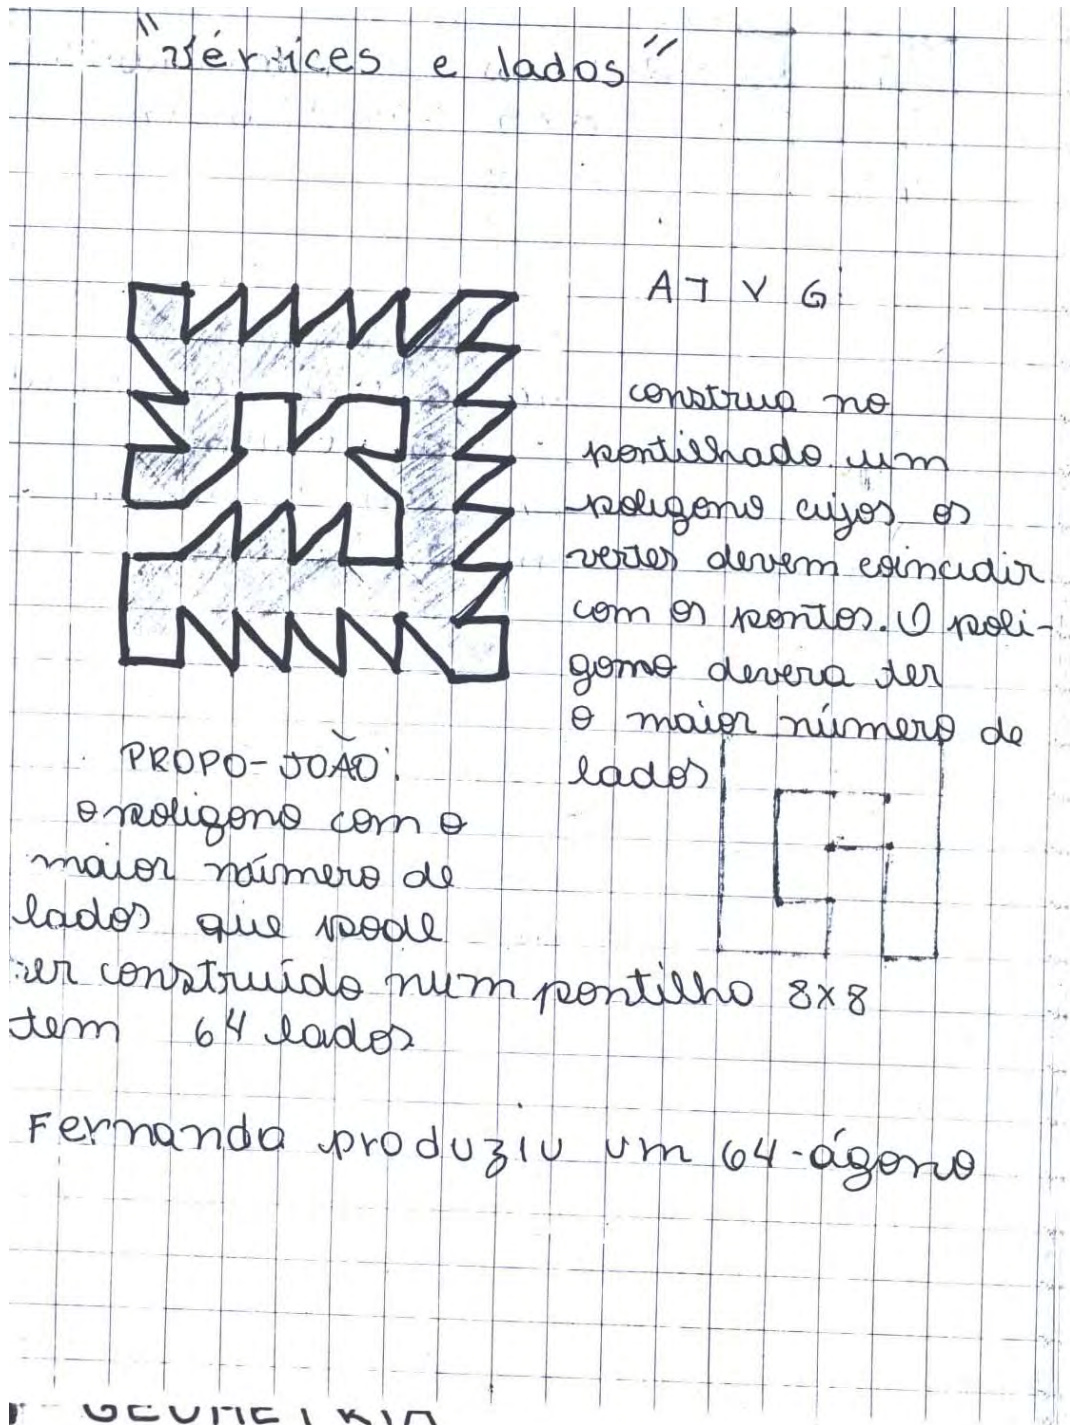 "vérices e lados"
A T V G
construa no
pontilhado um
poligono cujos os
vertes devem coincidir
com os pontos. O poli-
gono devera ter
o maior número de
lados
PROPO-JOÃO:
o poligono com o
maior número de
lados que pode
ser construído num pontilho 8x8
tem 64 lados
Fernanda produziu um 64-ágono
GEOMETRIA